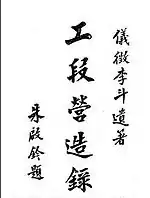 儀徵李斗遺著
工段營造錄
朱啟鈐題